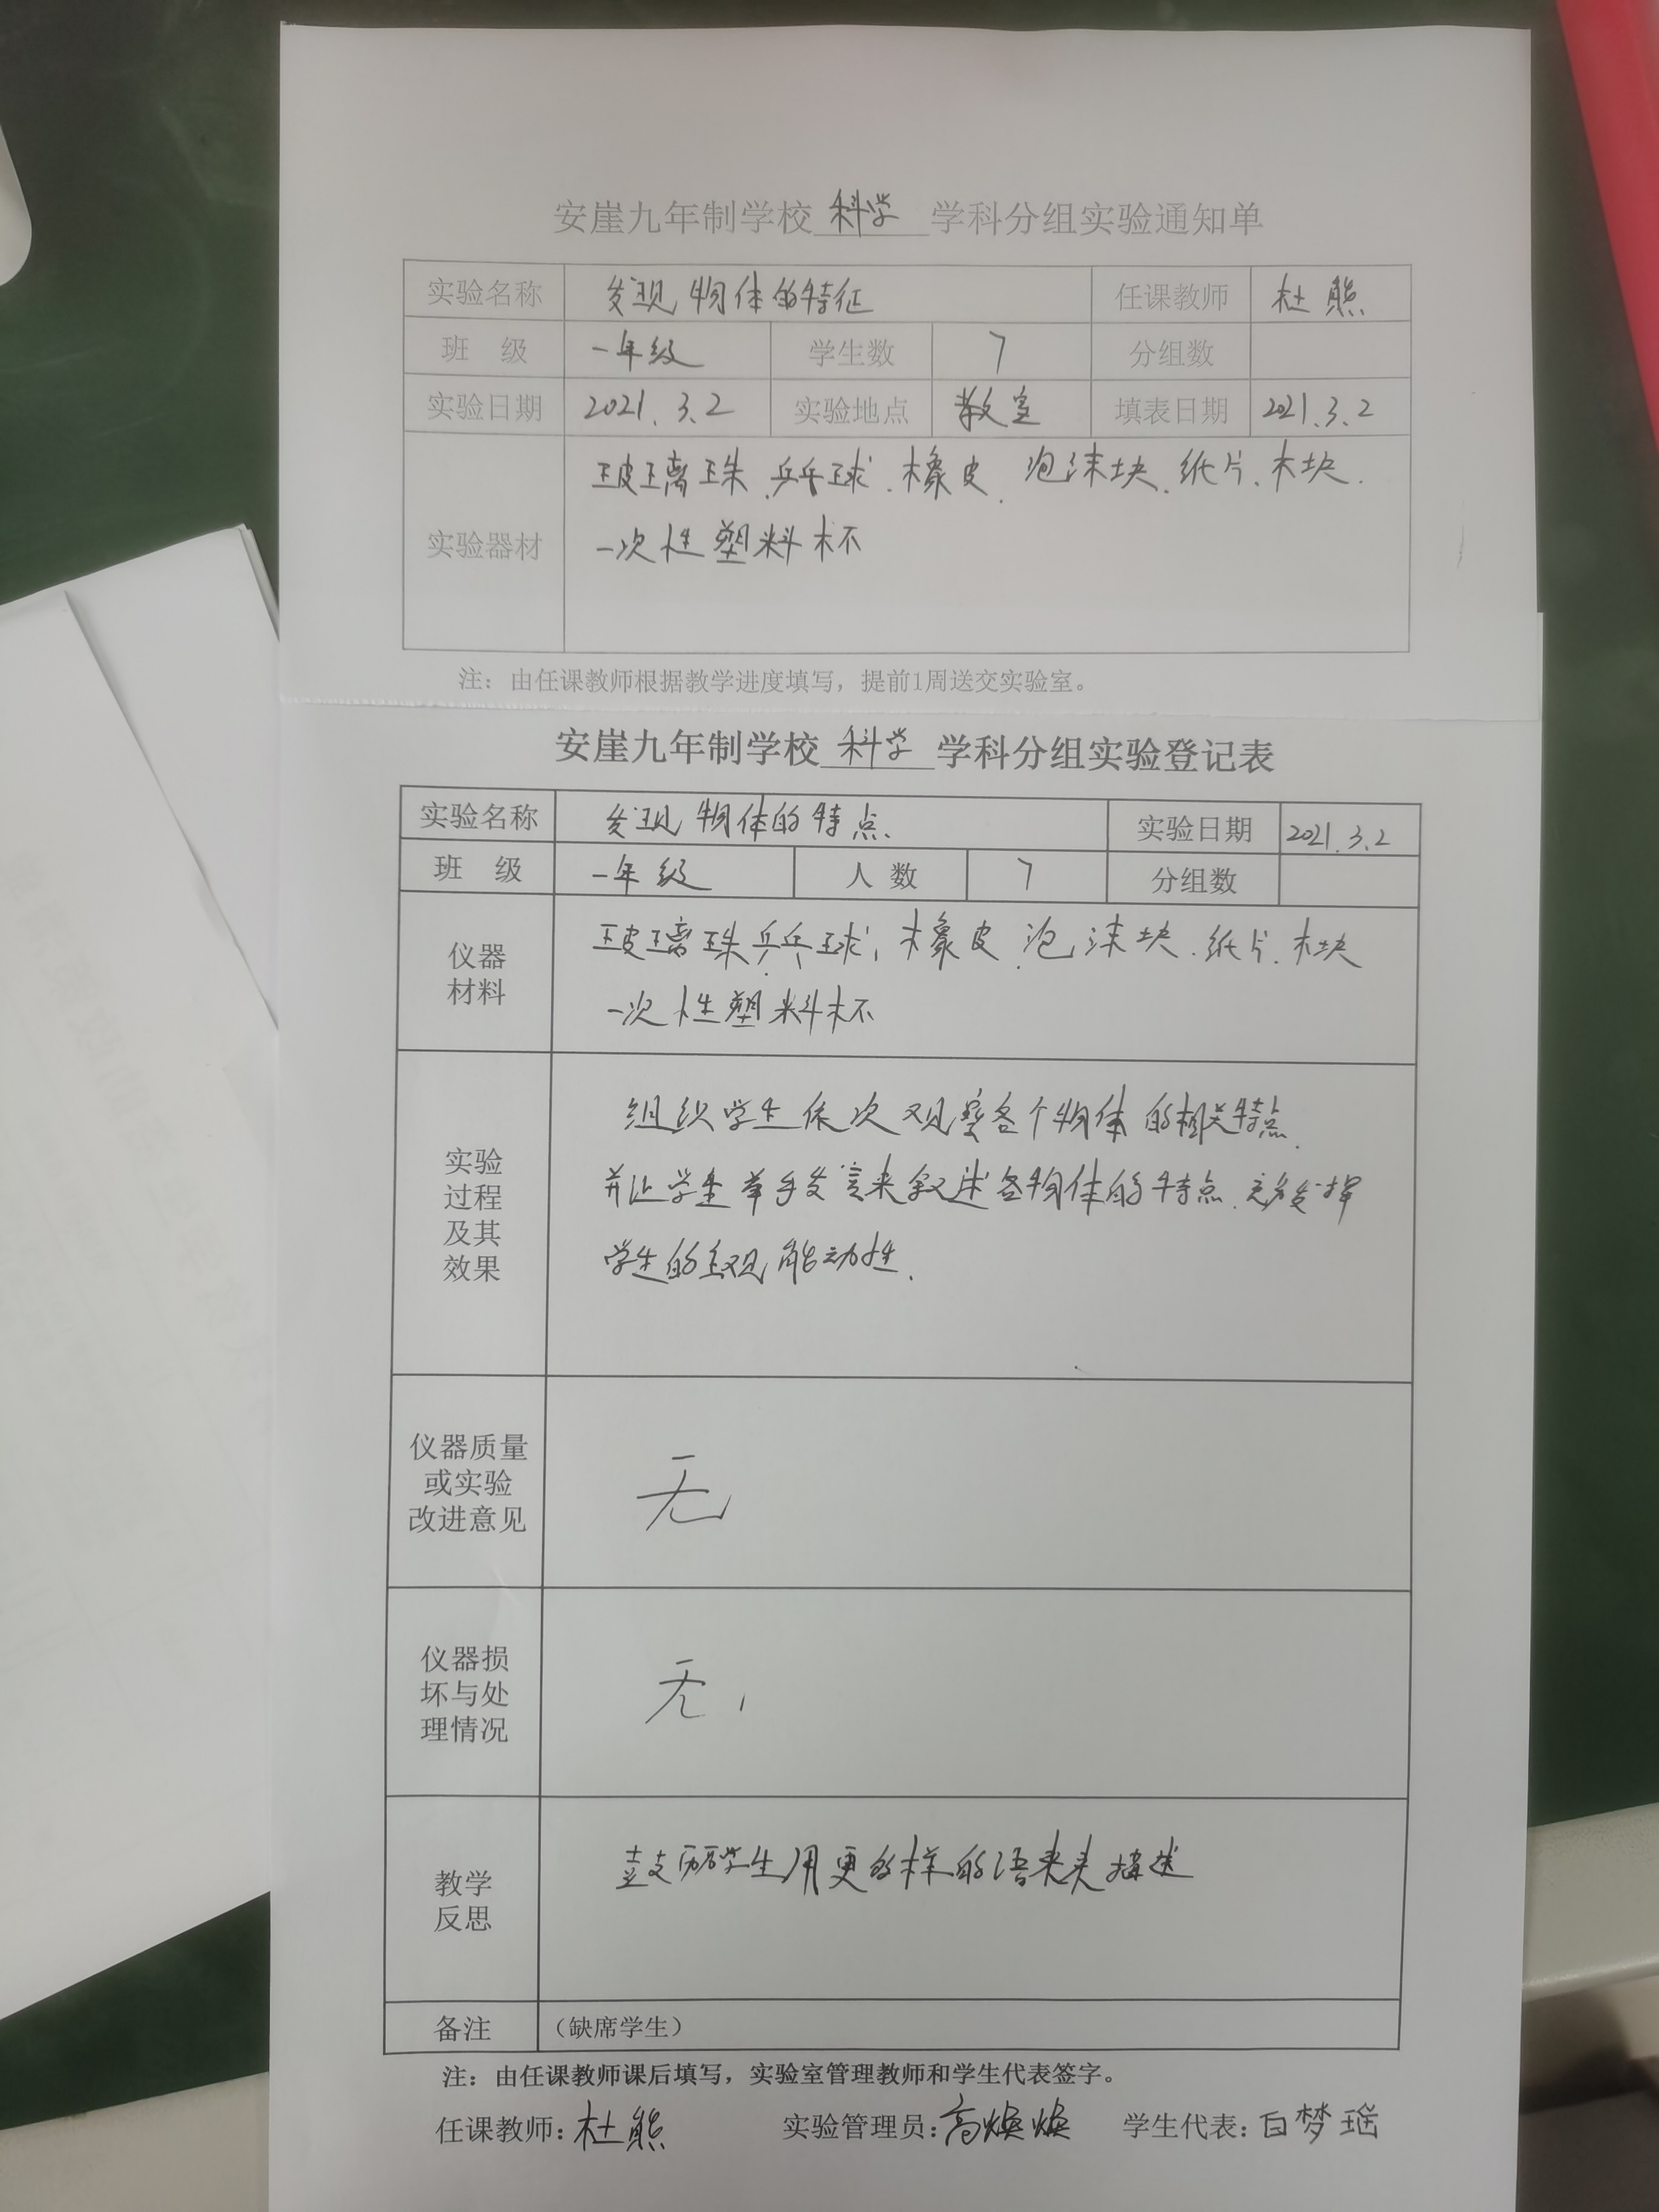 安崖九年制学校 科学 学科分组实验通知单
实验名称 发现物体的特征 任课教师 杜熊
班 级 一年级 学生数 7 分组数
实验日期 2021.3.2 实验地点 教室 填表日期 2021.3.2
实验器材
玻璃珠、乒乓球、橡皮、泡沫块、纸片、木块、
一次性塑料杯
注：由任课教师根据教学进度填写，提前1周送交实验室。
安崖九年制学校 科学 学科分组实验登记表
实验名称 发现物体的特点、 实验日期 2021.3.2
班 级 一年级 人 数 7 分组数
仪器
材料
玻璃珠、乒乓球、橡皮、泡沫块、纸片、木块
一次性塑料杯
实验
过程
及其
效果
组织学生依次观察各个物体的相关特点、
并让学生举手发言来叙述各物体的特点、充分发挥
学生的主观能动性、
仪器质量
或实验
改进意见
无
仪器损
坏与处
理情况
无、
教学
反思
鼓励学生用更多样的语来描述
备注 （缺席学生）
注：由任课教师课后填写，实验室管理教师和学生代表签字。
任课教师：杜熊 实验管理员：高焕焕 学生代表：白梦瑶